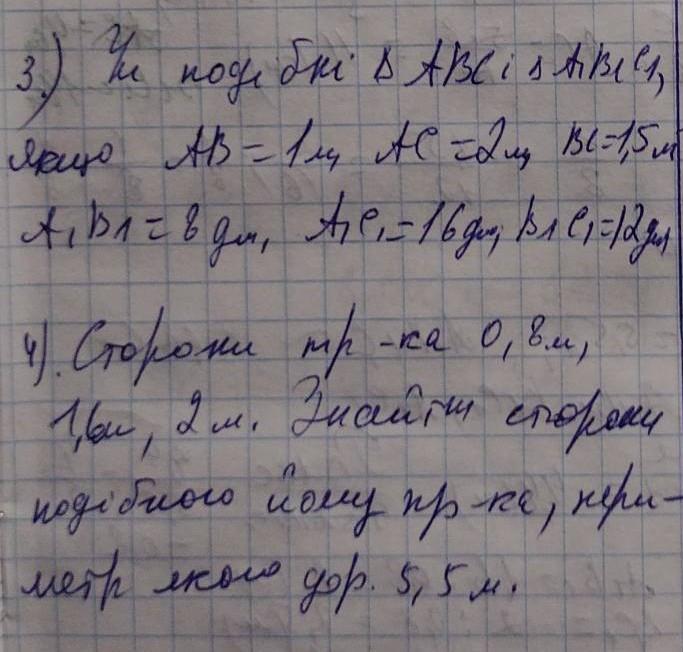 3.) Чи подібні Δ ABC і Δ A1B1C1,
якщо AB = 1м, AC = 2м, BC = 1,5 м
A1B1 = 8 дм, A1C1 = 16 дм, B1C1 = 12 дм
4). Сторони тр-ка 0,8 м,
1,6м, 2 м. Знайти сторони
подібного йому тр-ка, пери-
метр якого дор. 5,5 м.